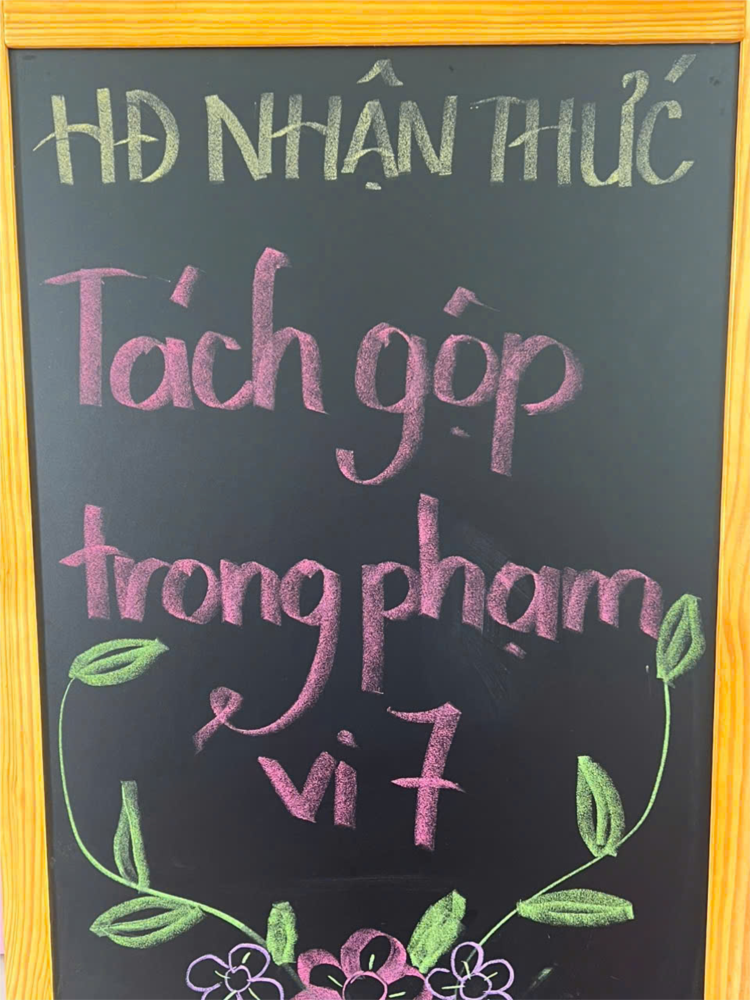 HĐ NHẬN THỨC
Tách gộp
trong phạm
vi 7